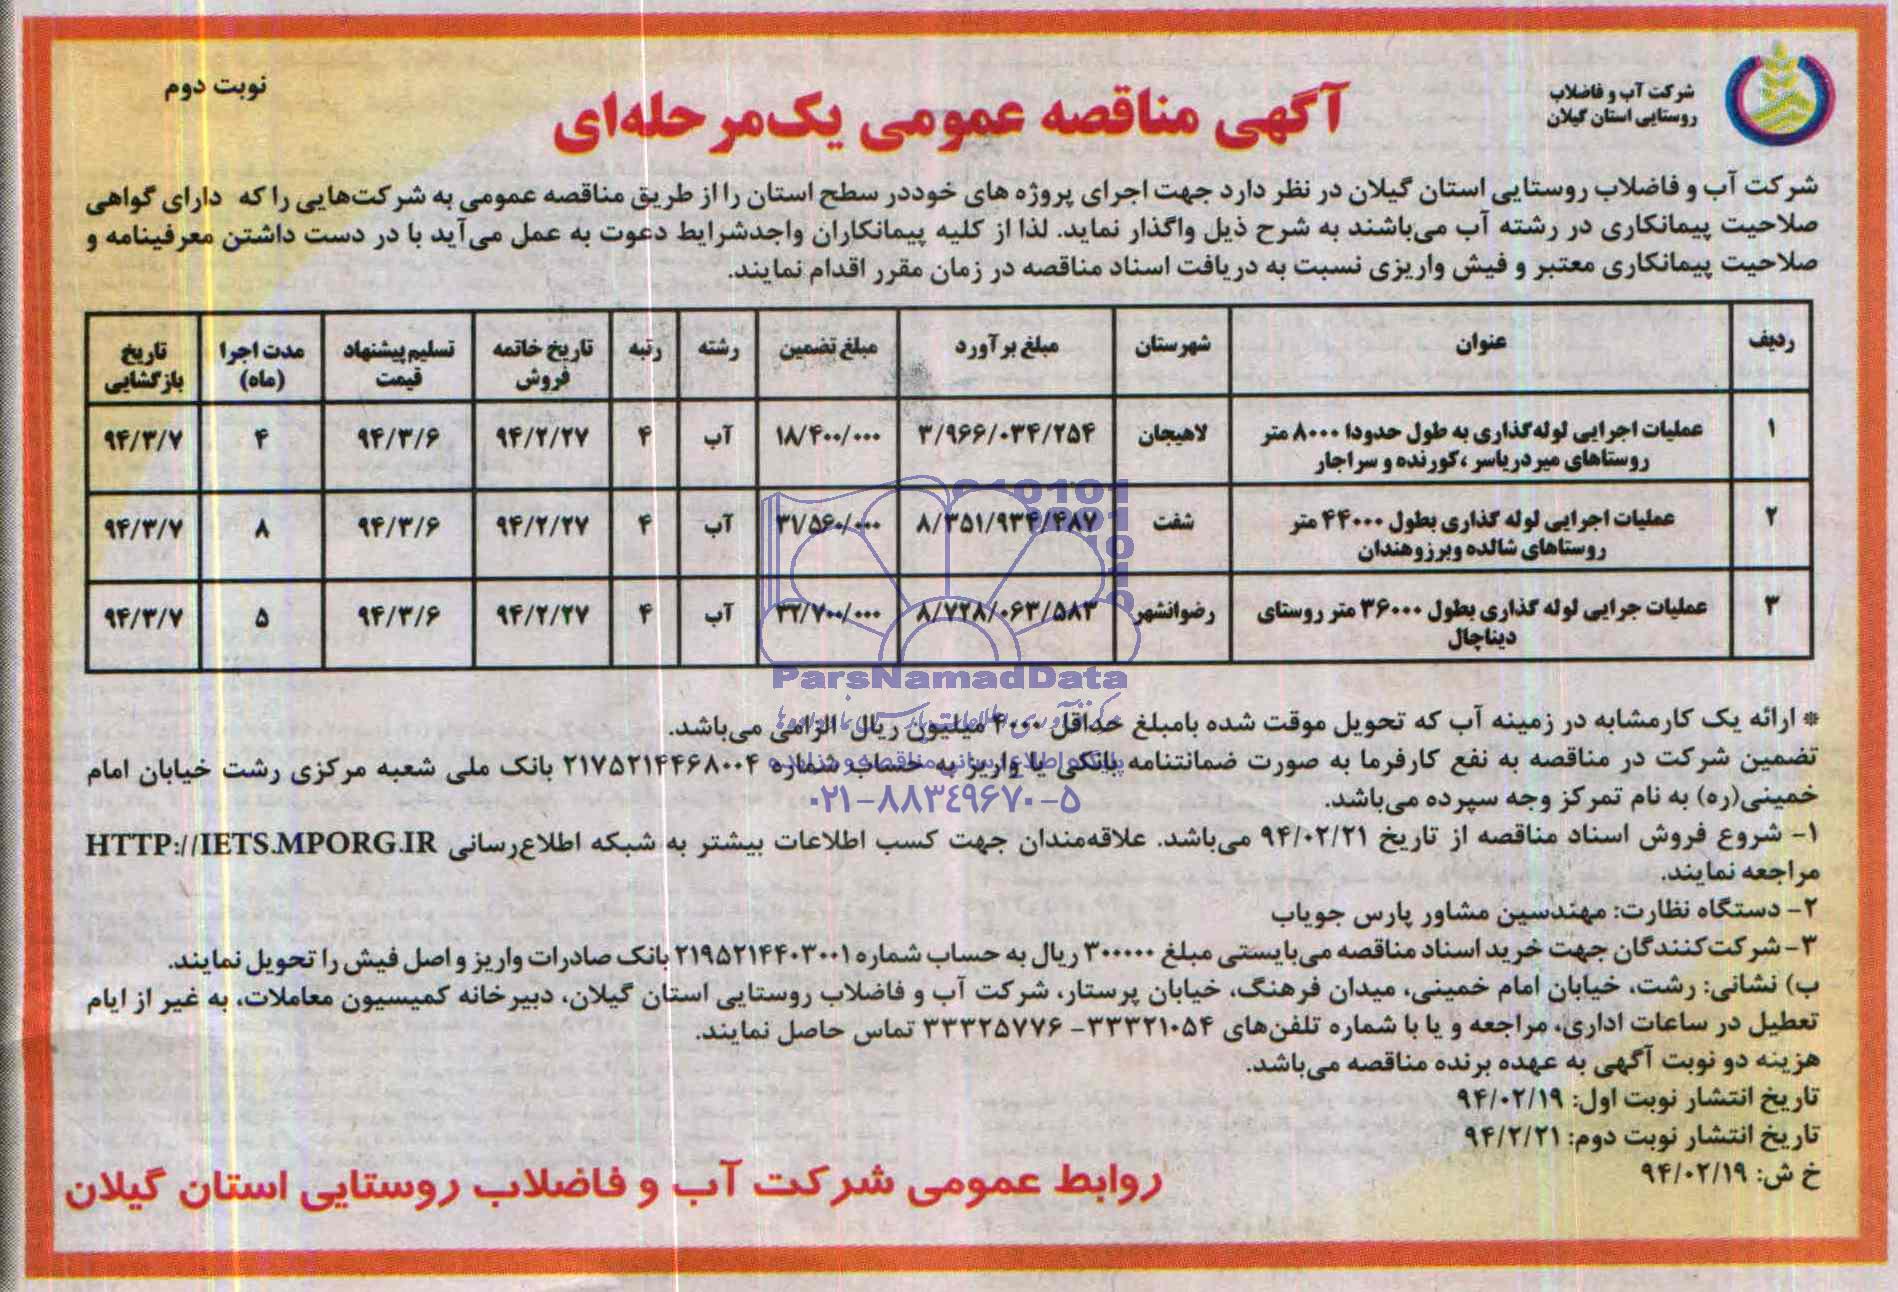 شرکت آب و فاضلاب
روستایی استان گیلان
نوبت دوم
آگهی مناقصه عمومی یک‌مرحله‌ای
شرکت آب و فاضلاب روستایی استان گیلان در نظر دارد جهت اجرای پروژه های خوددر سطح استان را از طریق مناقصه عمومی به شرکت‌هایی را که دارای گواهی
صلاحیت پیمانکاری در رشته آب می‌باشند به شرح ذیل واگذار نماید. لذا از کلیه پیمانکاران واجدشرایط دعوت به عمل می‌آید با در دست داشتن معرفینامه و
صلاحیت پیمانکاری معتبر و فیش واریزی نسبت به دریافت اسناد مناقصه در زمان مقرر اقدام نمایند.
ردیف عنوان شهرستان مبلغ برآورد مبلغ تضمین رشته رتبه تاریخ خاتمه فروش تسلیم پیشنهاد قیمت مدت اجرا (ماه) تاریخ بازگشایی
۱ عملیات اجرایی لوله‌گذاری به طول حدودا ۸۰۰۰ متر لاهیجان ۳/۹۶۶/۰۳۴/۲۵۴ ۱۸/۴۰۰/۰۰۰ آب ۴ ۹۴/۲/۲۷ ۹۴/۳/۶ ۴ ۹۴/۳/۷
روستاهای میردریاسر، کورنده و سراجار
۲ عملیات اجرایی لوله گذاری بطول ۴۴۰۰۰ متر شفت ۸/۳۵۱/۹۳۴/۴۸۷ ۳۱/۵۶۰/۰۰۰ آب ۴ ۹۴/۲/۲۷ ۹۴/۳/۶ ۸ ۹۴/۳/۷
روستاهای شالده وبرزوهندان
۳ عملیات جرایی لوله گذاری بطول ۳۶۰۰۰ متر روستای رضوانشهر ۸/۷۲۸/۰۶۳/۵۸۳ ۳۲/۷۰۰/۰۰۰ آب ۴ ۹۴/۲/۲۷ ۹۴/۳/۶ ۵ ۹۴/۳/۷
دیناچال
ParsNamadData
* ارائه یک کارمشابه در زمینه آب که تحویل موقت شده بامبلغ حداقل ۴۰۰۰ میلیون ریال الزامی می‌باشد.
تضمین شرکت در مناقصه به نفع کارفرما به صورت ضمانتنامه بانکی یا واریز به حساب شماره ۲۱۷۵۲۱۴۴۶۸۰۰۴ بانک ملی شعبه مرکزی رشت خیابان امام
خمینی(ره) به نام تمرکز وجه سپرده می‌باشد.
۰۲۱-۸۸۳۴۹۶۷۰-۵
۱- شروع فروش اسناد مناقصه از تاریخ ۹۴/۰۲/۲۱ می‌باشد. علاقه‌مندان جهت کسب اطلاعات بیشتر به شبکه اطلاع‌رسانی HTTP://IETS.MPORG.IR
مراجعه نمایند.
۲- دستگاه نظارت: مهندسین مشاور پارس جویاب
۳- شرکت‌کنندگان جهت خرید اسناد مناقصه می‌بایستی مبلغ ۳۰۰۰۰۰ ریال به حساب شماره ۲۱۹۵۲۱۴۴۰۳۰۰۱ بانک صادرات واریز و اصل فیش را تحویل نمایند.
ب) نشانی: رشت، خیابان امام خمینی، میدان فرهنگ، خیابان پرستار، شرکت آب و فاضلاب روستایی استان گیلان، دبیرخانه کمیسیون معاملات، به غیر از ایام
تعطیل در ساعات اداری، مراجعه و یا با شماره تلفن‌های ۳۳۳۲۱۰۵۴- ۳۳۳۲۵۷۷۶ تماس حاصل نمایند.
هزینه دو نوبت آگهی به عهده برنده مناقصه می‌باشد.
تاریخ انتشار نوبت اول: ۹۴/۰۲/۱۹
تاریخ انتشار نوبت دوم: ۹۴/۲/۲۱
خ ش: ۹۴/۰۲/۱۹
روابط عمومی شرکت آب و فاضلاب روستایی استان گیلان